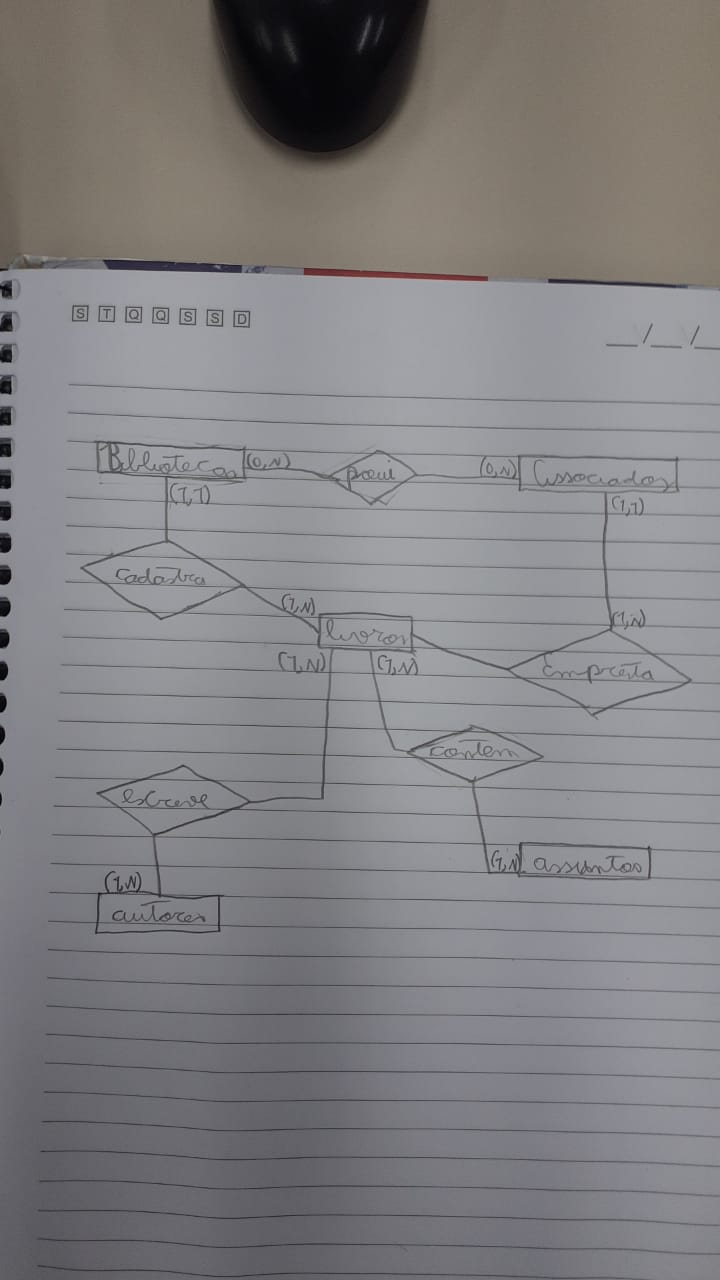 S T Q Q S S D
__/__/__
Bibliotecas (0,N) possui (0,N) Associados
(1,1) (1,1)
cadastra
(1,N) (1,N)
livros
(1,N) (1,N) Empresta
contem
escreve
(1,N) assuntos
(1,N)
autores